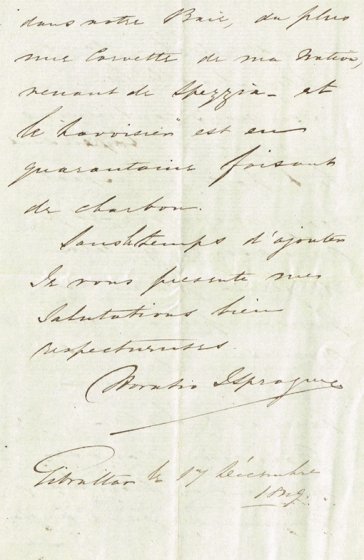 dans notre Baie, du plus
une Corvette de ma Nation,
venant de Spezzia - et
le "Lavoisier" est en
quarantaine faisant
de charbon.
Sans temps d'ajouter
Je vous présente mes
Salutations bien
respectueuses.
Horatio J Sprague
Gibraltar le 17 Décembre